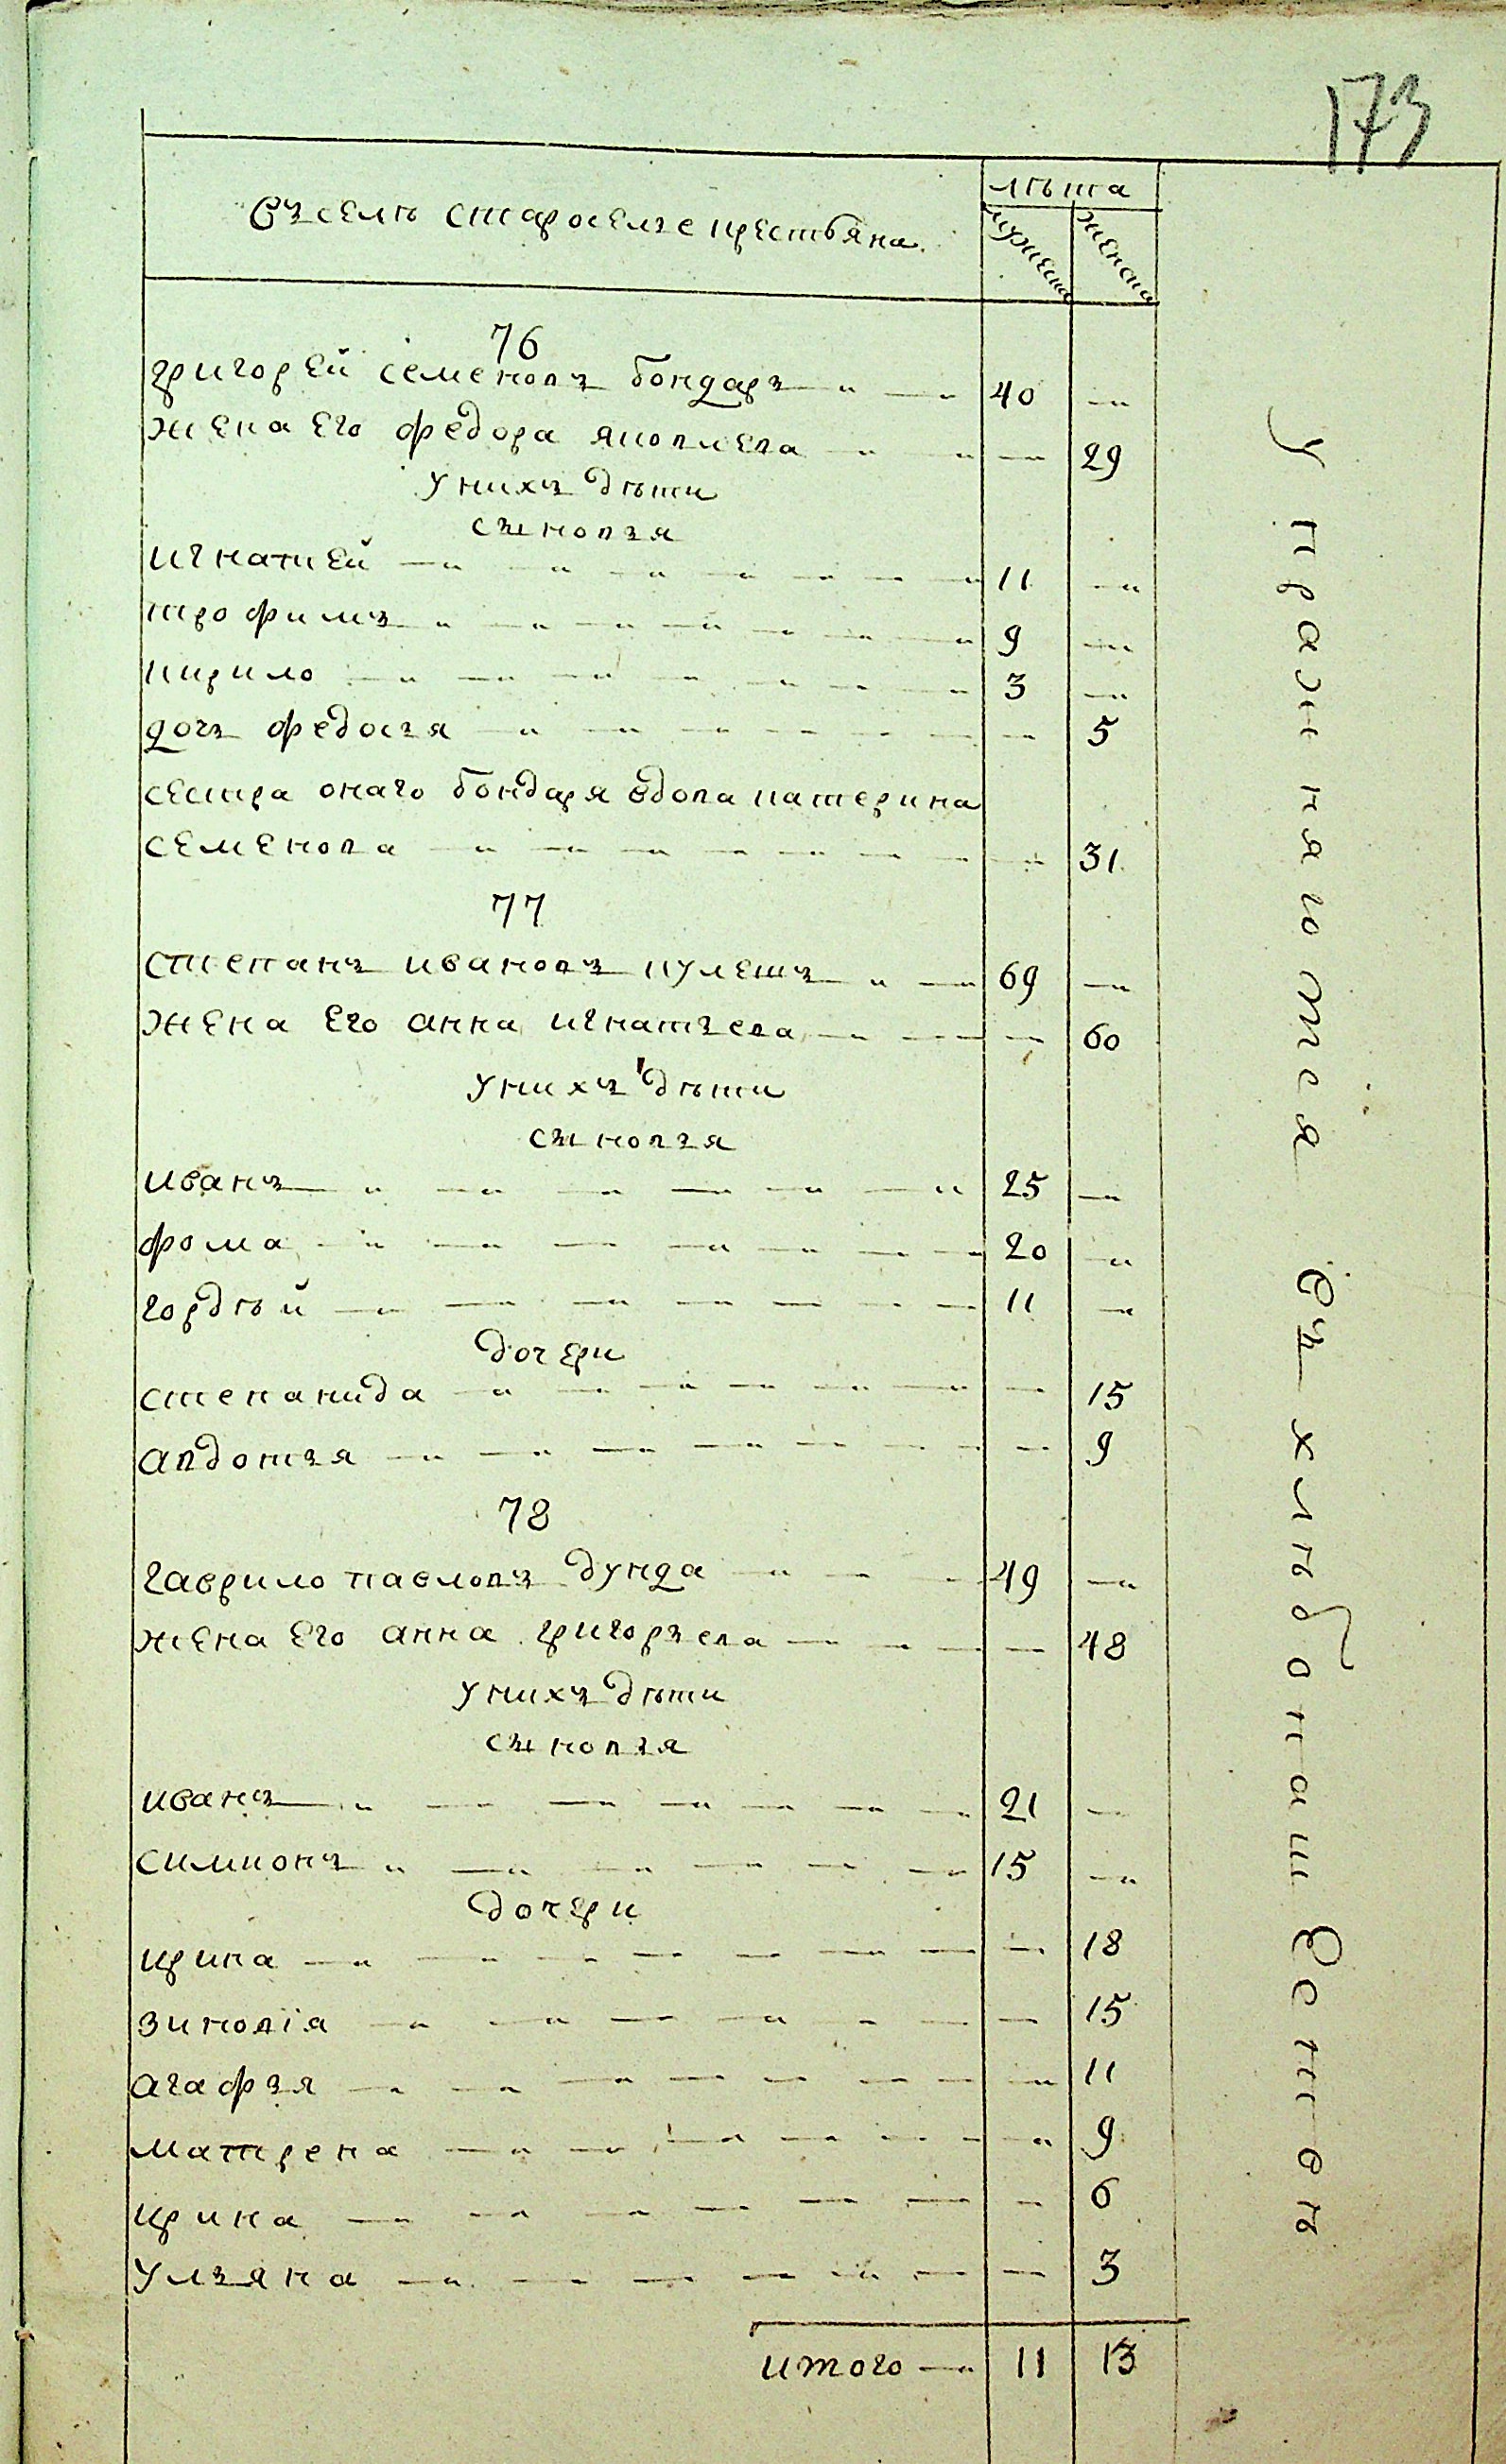 173
Въ селѣ староселье крестьяна
лѣта
мужеска
женска
76
григорей семеновъ бондаръ 40
жена его федора яковлева 29
у нихъ дѣти
сыновья
игнатией 11
трофимъ 9
кирило 3
дочъ федосья 5
сестра онаго бондаря вдова катерина
семенова 31
77
степанъ ивановъ кулешъ 69
жена его анна игнатьева 60
у нихъ дѣти
сыновья
иванъ 25
фома 20
гордѣй 11
дочери
степанида 15
авдотья 9
78
гаврило павловъ дунда 49
жена его анна григорьева 48
у нихъ дѣти
сыновья
иванъ 21
симионъ 15
дочери
ирина 18
зиновія 15
агафья 11
матрена 9
ирина 6
ульяна 3
итого 11 13
Упражняются въ хлѣбопашество